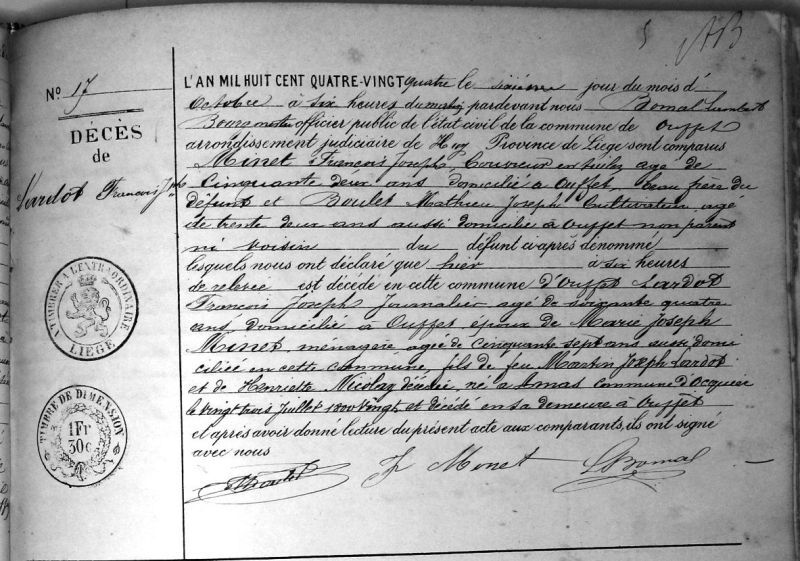 5 AB
N° 17
DÉCÈS
de
Lardot François Jph
A TIMBRER A L'EXTRAORDINAIRE
LIEGE
TIMBRE DE DIMENSION
1 Fr
30c
L'AN MIL HUIT CENT QUATRE-VINGT quatre le sixième jour du mois d'
Octobre à six heures du matin pardevant nous Bomal Lambert
Bourgmestre officier public de l'état civil de la commune de Ouffet
arrondissement judiciaire de Huy Province de Liège sont comparus
Minet François Joseph Couvreur en agé de
Cinquante deux ans domicilié à Ouffet, beau frère du
défunt et Boulet Mathieu Joseph Cultivateur agé
de trente deux ans aussi domicilié à Ouffet non parent
ni voisin du défunt ci-après dénommé
lesquels nous ont déclaré que hier à six heures
de relevée est décédé en cette commune d'Ouffet Lardot
François Joseph Journalier agé de soixante quatre
ans domicilié à Ouffet, époux de Marie Joseph
Minet, ménagère agée de cinquante sept ans aussi domi
ciliée en cette commune, fils de feu Martin Joseph Lardot
et de Henriette Nicolay décédée, né à Amas commune d'Ocquier
le vingt trois juillet 1800 vingt, et décédé en sa demeure à Ouffet
et après avoir donné lecture du présent acte aux comparants, ils ont signé
avec nous
MBoulet F Minet LBomal